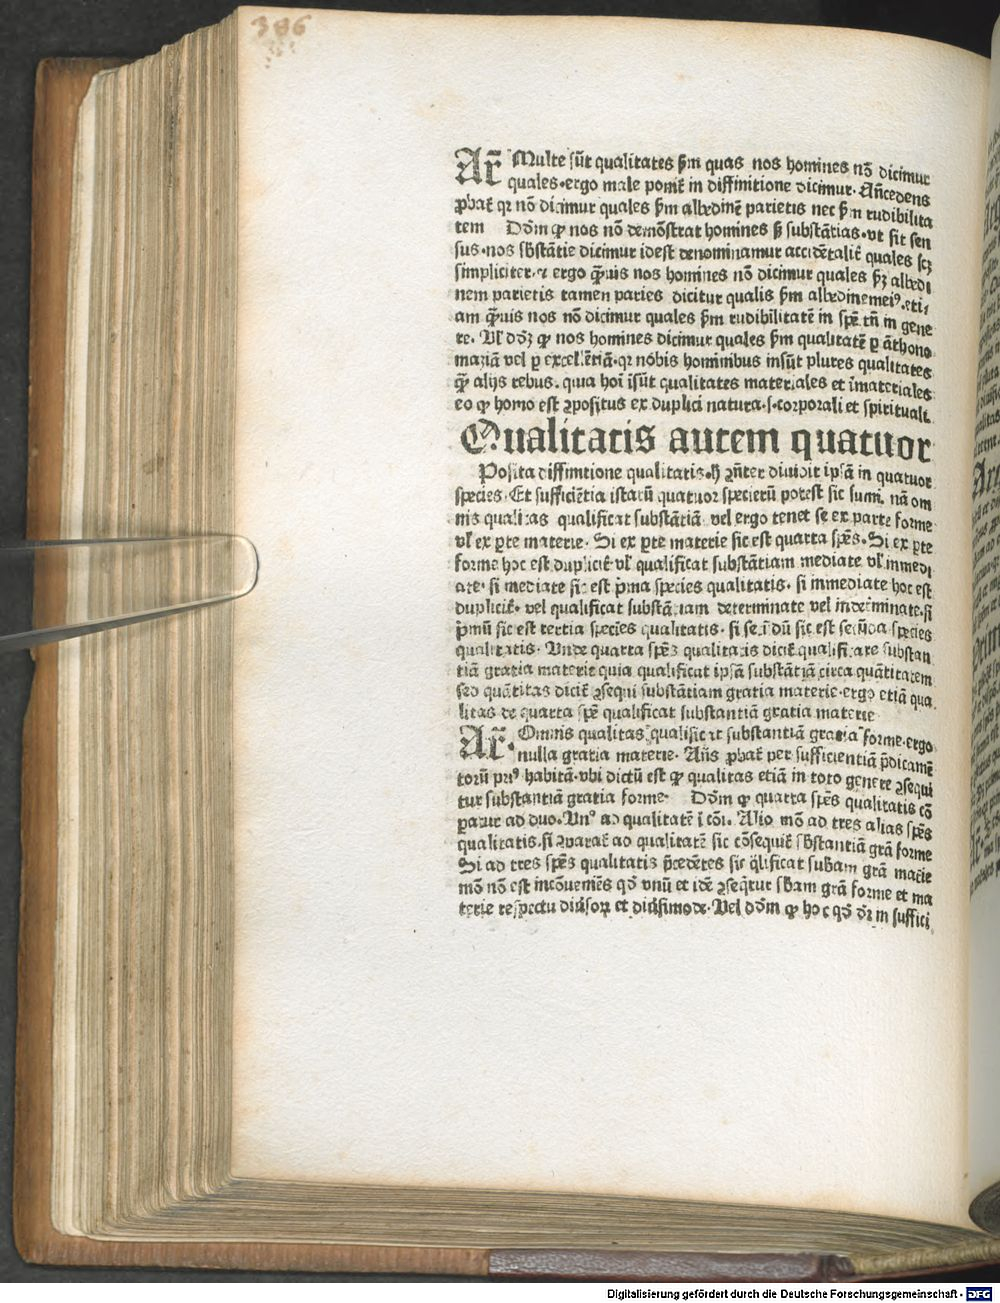 386
Ar̄ Multe sūt qualitates ẜm quas nos homines nō dicimur
quales·ergo male ponit̄ in diffinitione dicimur· Añcedens
ꝓbat̄ qꝛ nō dicimur quales ẜm albedinē parietis nec ẜm rudibilita
tem Dōm ꝙ nos nō demōstrat homines ẜ substātias·vt sit sen
sus·nos sb̄stātie dicimur idest denominamur accidētalit̄ quales sꝫ
simpliciter·⁊ ergo q̄uis nos homines nō dicimur quales ẜꝫ albedi
nem parietis tamen paries dicitur qualis ẜm albedinem eiꝰ.eti,
am q̄uis nos nō dicimur quales ẜm rudibilitatē in spē tn̄ in gene
re. Vl̄ dōꝫ ꝙ nos homines dicimur quales ẜm qualitatē ꝑ āthono
maziā vel ꝑ excellētiā·qꝛ nobis hominibus insūt plures qualitates
q̄ʒ alijs rebus. quia hoī īsūt qualitates materiales et īmateriales
eo ꝙ homo est ꝯpositus ex duplici natura·s·corporali et spirituali.
Qualitatis autem quatuor
Posita diffinitione qualitatis·ħ ꝯn̄ter diuidit ipsā in quatuor
species· Et sufficiētia istarū quatuor specierū potest sic sumi. nā om
nis qualitas qualificat substātiā vel ergo tenet se ex parte forme
vl̄ ex ꝑte materie· Si ex ꝑte materie sic est quarta spēs. Si ex ꝑte
forme hoc est duplicit̄ vl̄ qualificat substātiam mediate vl̄ immedi
ate· si mediate sic est p̄ma species qualitatis. si inmediate hoc est
duplicit̄· vel qualificat substātiam determinate vel indeterminate·si
p̄mū sic est tertia species qualitatis· si secūdū sic est secūda species
qualitatis· Vnde quarta spēs qualitatis dicit̄ qualificare substan
tiā gratia materie quia qualificat ipsā substātiā circa quātitatem
sed quātitas dicit̄ ꝯsequi substātiam gratia materie·ergo etiā qua
litas de quarta spē qualificat substantiā gratia materie
Ar̄. Omnis qualitas qualificat substantiā gratia forme·ergo
nulla gratia materie· Añs ꝓbat̄ per sufficientiā p̄dicamē
torū priꝰ habitā·vbi dictū est ꝙ qualitas etiā in toto genere ꝯsequi
tur substantiā gratia forme· Dōm ꝙ quarta spēs qualitatis cō
paratur ad duo. Vnº ad qualitatē ī cōi. Alio mō ad tres alias spēs
qualitatis·si ꝯparat̄ ad qualitatē sic cōsequit̄ sb̄stantiā grā forme
Si ad tres spēs qualitatis p̄cedētes sic q̄lificat subam grā mat̄ie
mō nō est incōueniēs qd̄ vnū et idē ꝯseq̄tur sb̄am grā forme et ma
terie respectu diūsoꝝ et diūsimode· Vel dōm ꝙ hoc qd̄ dr̄ in suffici
Digitalisierung gefördert durch die Deutsche Forschungsgemeinschaft - DFG